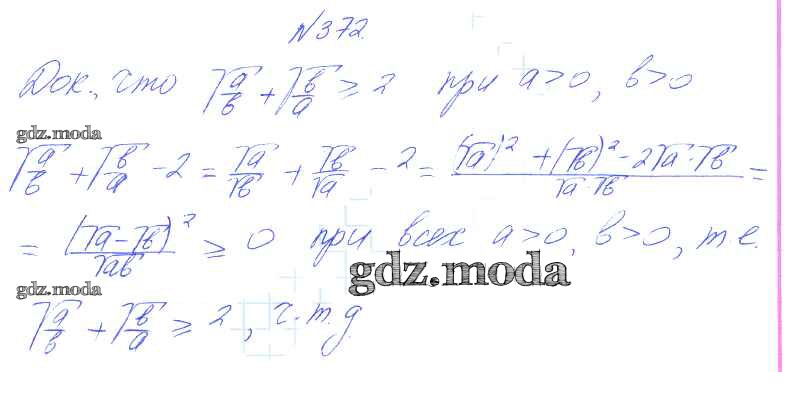 №372.
Док., что √(a/в) + √(в/a) ≥ 2 при a>0, в>0
gdz.moda
√(a/в) + √(в/a) - 2 = √a/√в + √в/√a - 2 = ((√a)² + (√в)² - 2√a·√в)/(√a·√в) =
= (√a - √в)²/√aв ≥ 0 при всех a>0, в>0, т.е.
gdz.moda
gdz.moda
√(a/в) + √(в/a) ≥ 2, ч.т.д.